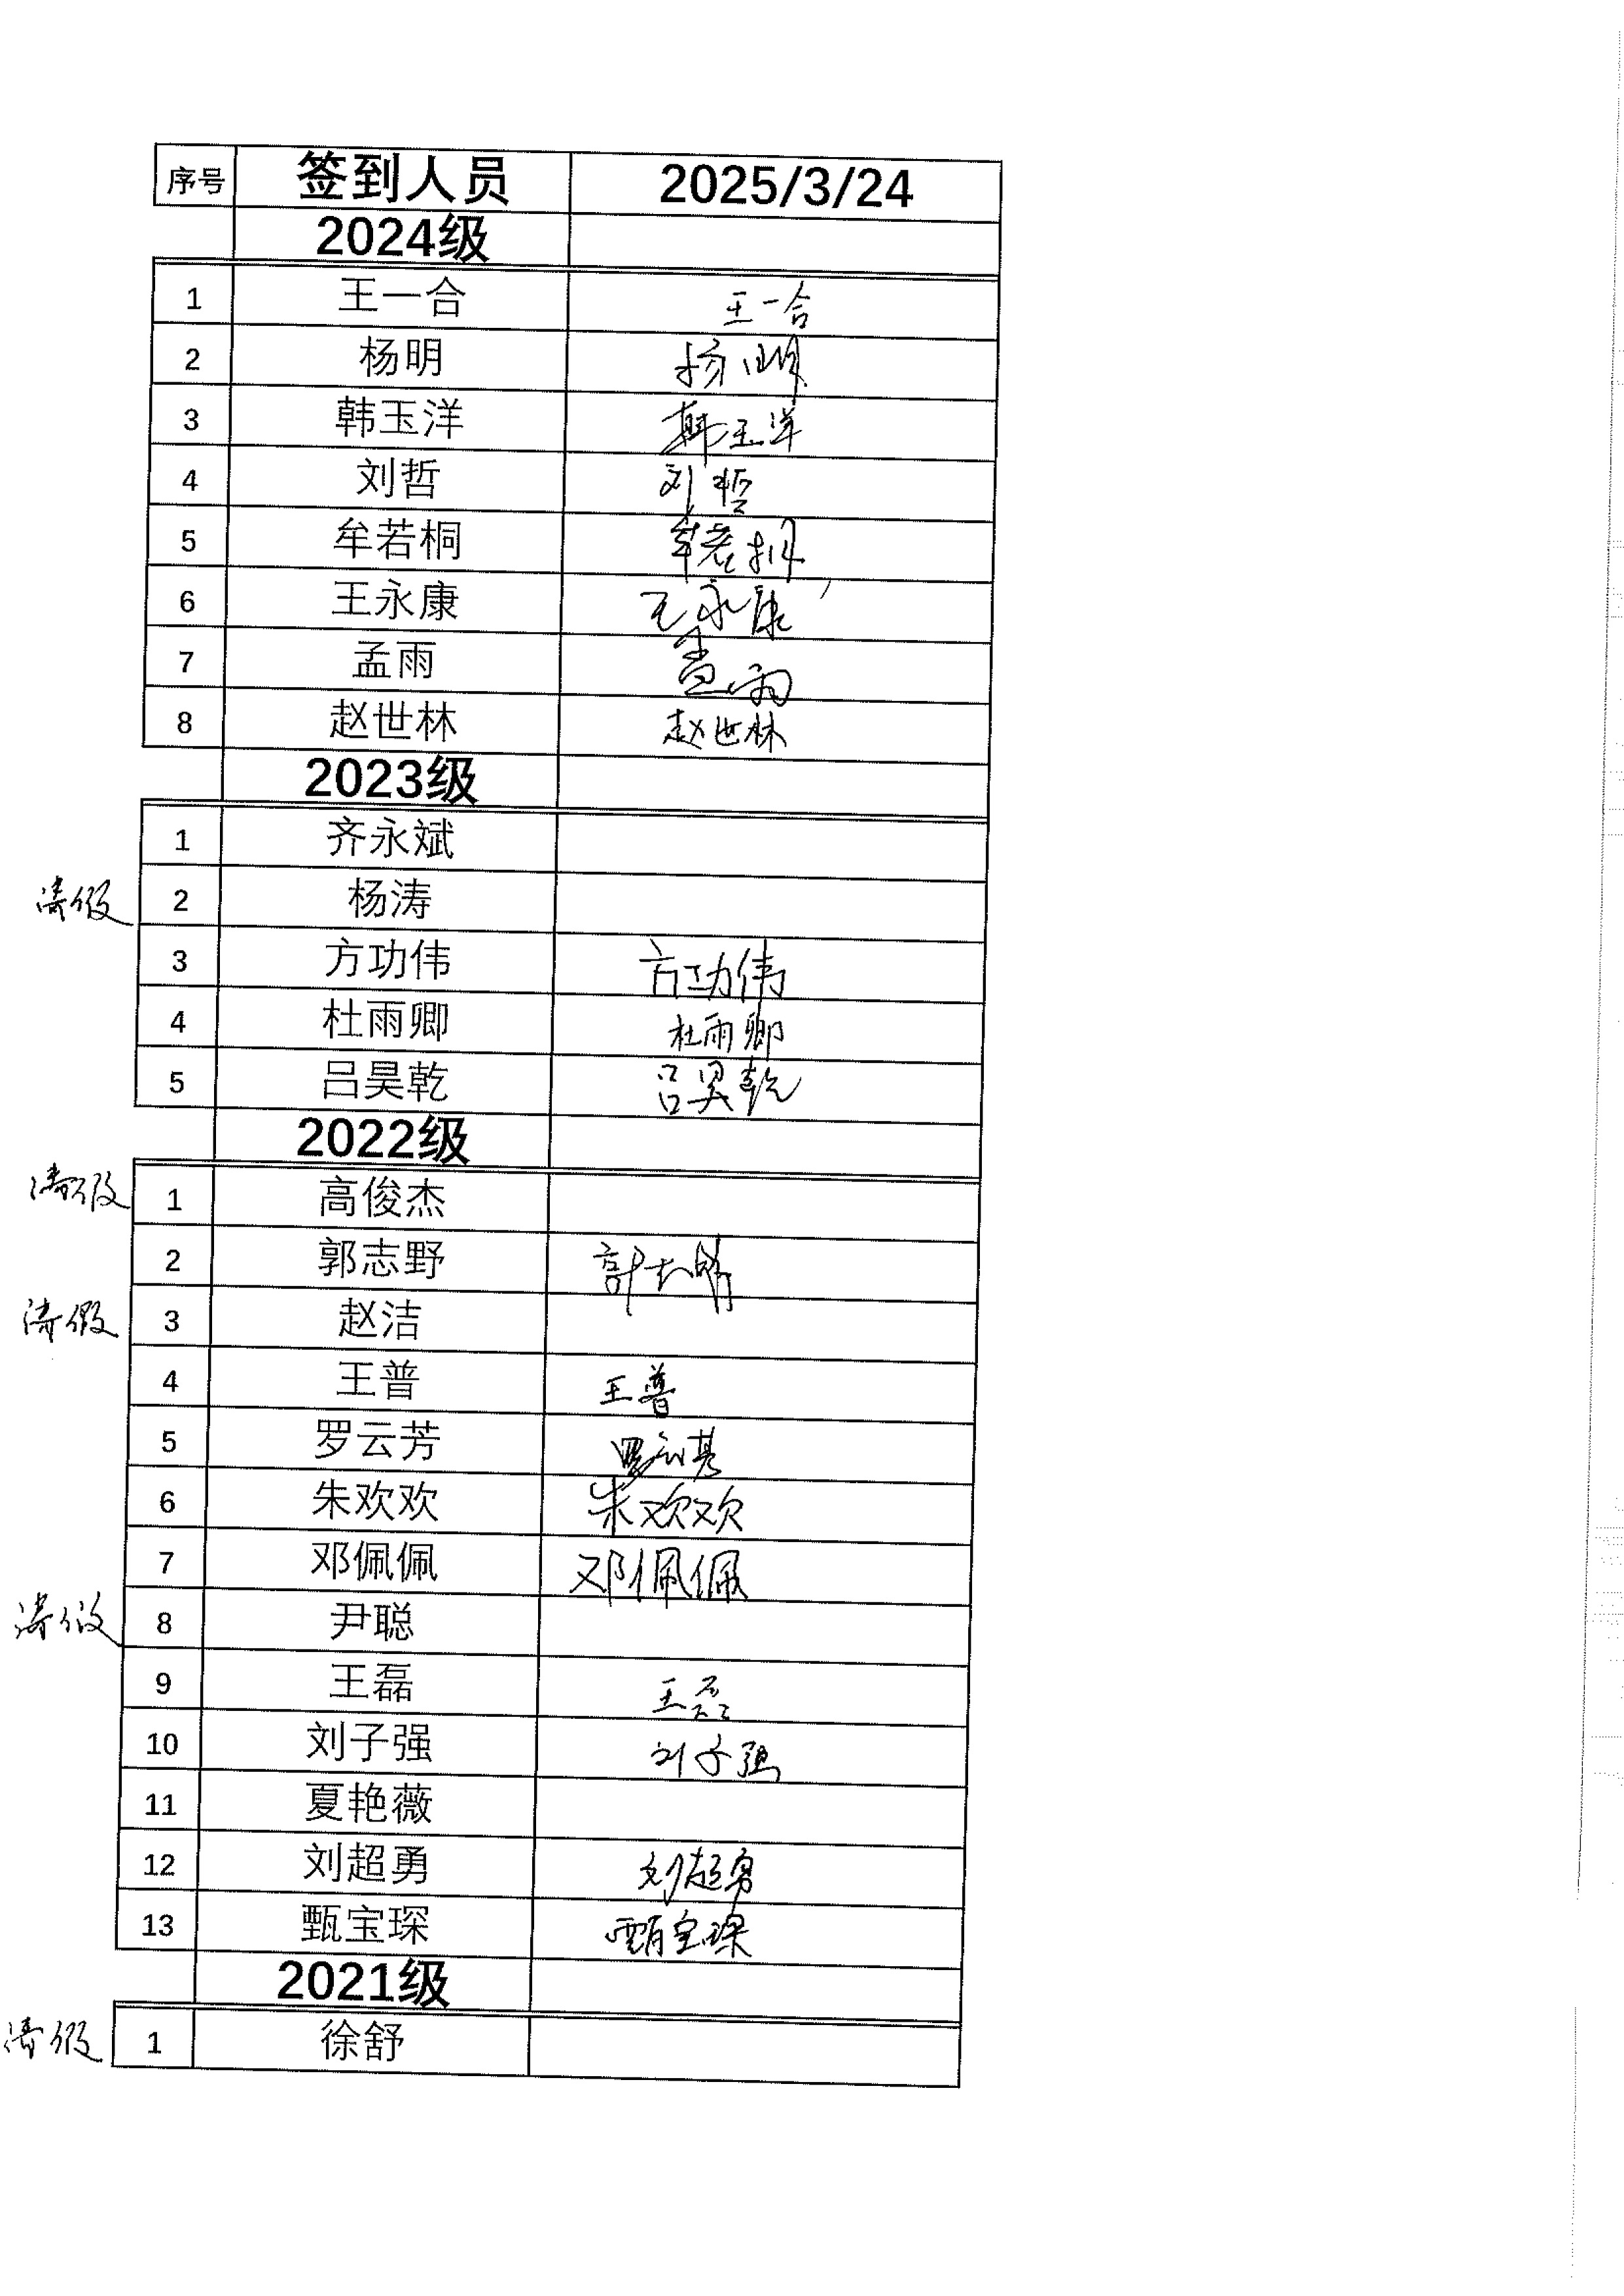 序号 签到人员 2025/3/24
2024级
1 王一合 王一合
2 杨明 杨明
3 韩玉洋 韩玉洋
4 刘哲 刘哲
5 牟若桐 牟若桐
6 王永康 王永康
7 孟雨 孟雨
8 赵世林 赵世林
2023级
1 齐永斌
请假 2 杨涛
3 方功伟 方功伟
4 杜雨卿 杜雨卿
5 吕昊乾 吕昊乾
2022级
请假 1 高俊杰
2 郭志野
请假 3 赵洁
4 王普 王普
5 罗云芳 罗云芳
6 朱欢欢 朱欢欢
7 邓佩佩 邓佩佩
请假 8 尹聪
9 王磊 王磊
10 刘子强 刘子强
11 夏艳薇
12 刘超勇 刘超勇
13 甄宝琛 甄宝琛
2021级
请假 1 徐舒